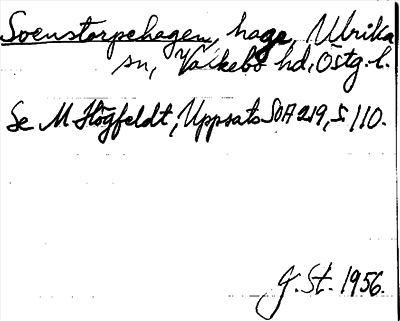 Svenstorpehagen, hage, Ulrika
sn, Valkebo hd, Östg. l.
Se M Högfeldt, Uppsats SOA 219, s. 110.
G. St. 1956.